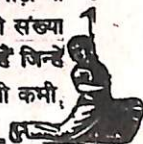 संख्या
हैं जिन्हें
ी कमी,